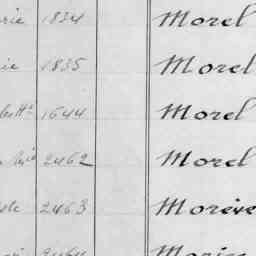 rie 1834 Morel
ie 1835 Morel
1644 Morel
2462 Morel
2463 Moreire